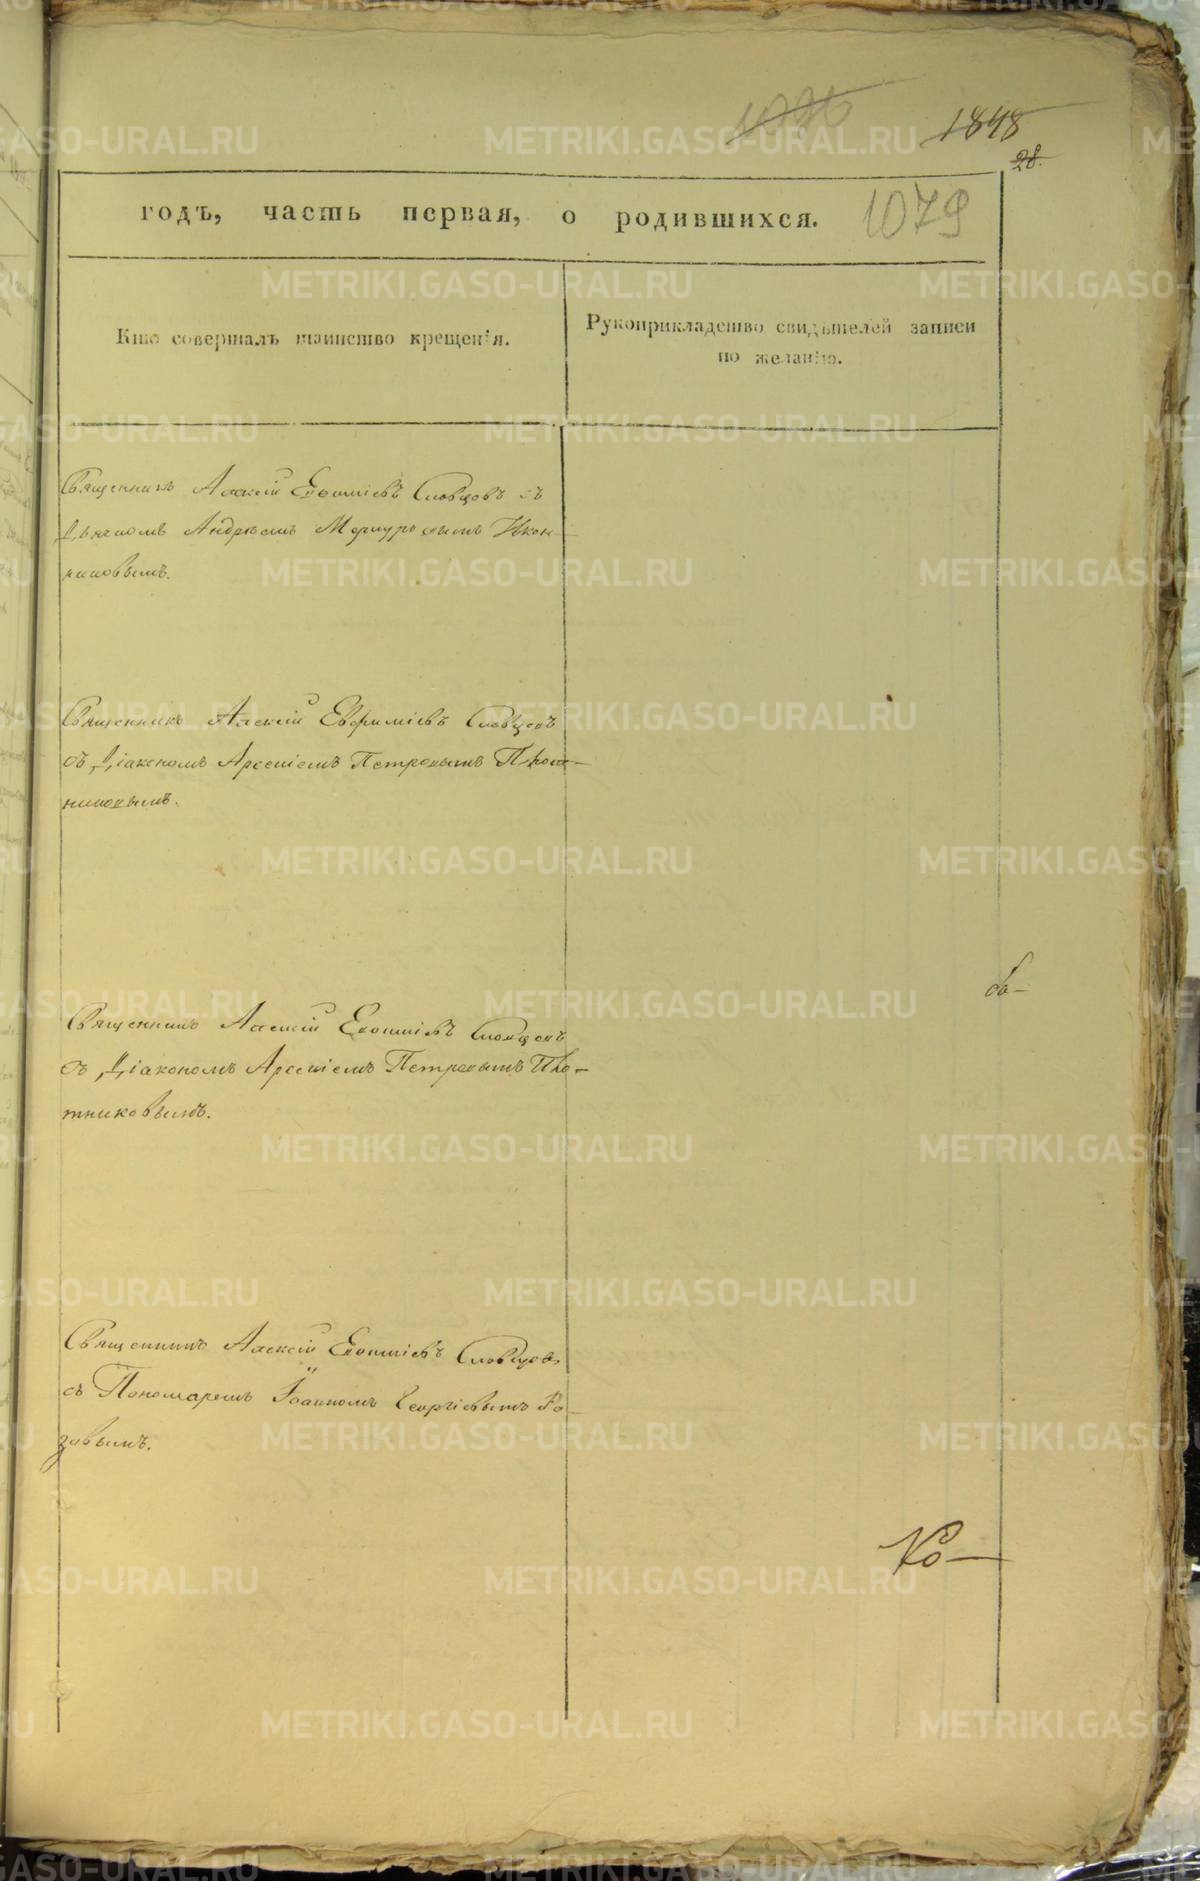 1848
28.
годъ, часть первая, о родившихся.
1079
Кто совершалъ таинство крещенія.
Рукоприкладство свидѣтелей записи
по желанію.
Священникъ Алексій Евѳиміевъ Словцовъ съ
Дьячкомъ Андреемъ Меркурьевымъ Икон-
никовымъ.
Священникъ Алексій Евфиміевъ Словцовъ
съ Діакономъ Арсеніемъ Петровымъ Плот-
никовымъ.
Священникъ Алексій Евѳиміевъ Словцовъ
съ Діакономъ Арсеніемъ Петровымъ Пло-
тниковымъ.
Священникъ Алексій Евѳиміевъ Словцовъ
съ Пономаремъ Іоанномъ Георгіевымъ Ро-
зовымъ.
METRIKI.GASO-URAL.RU